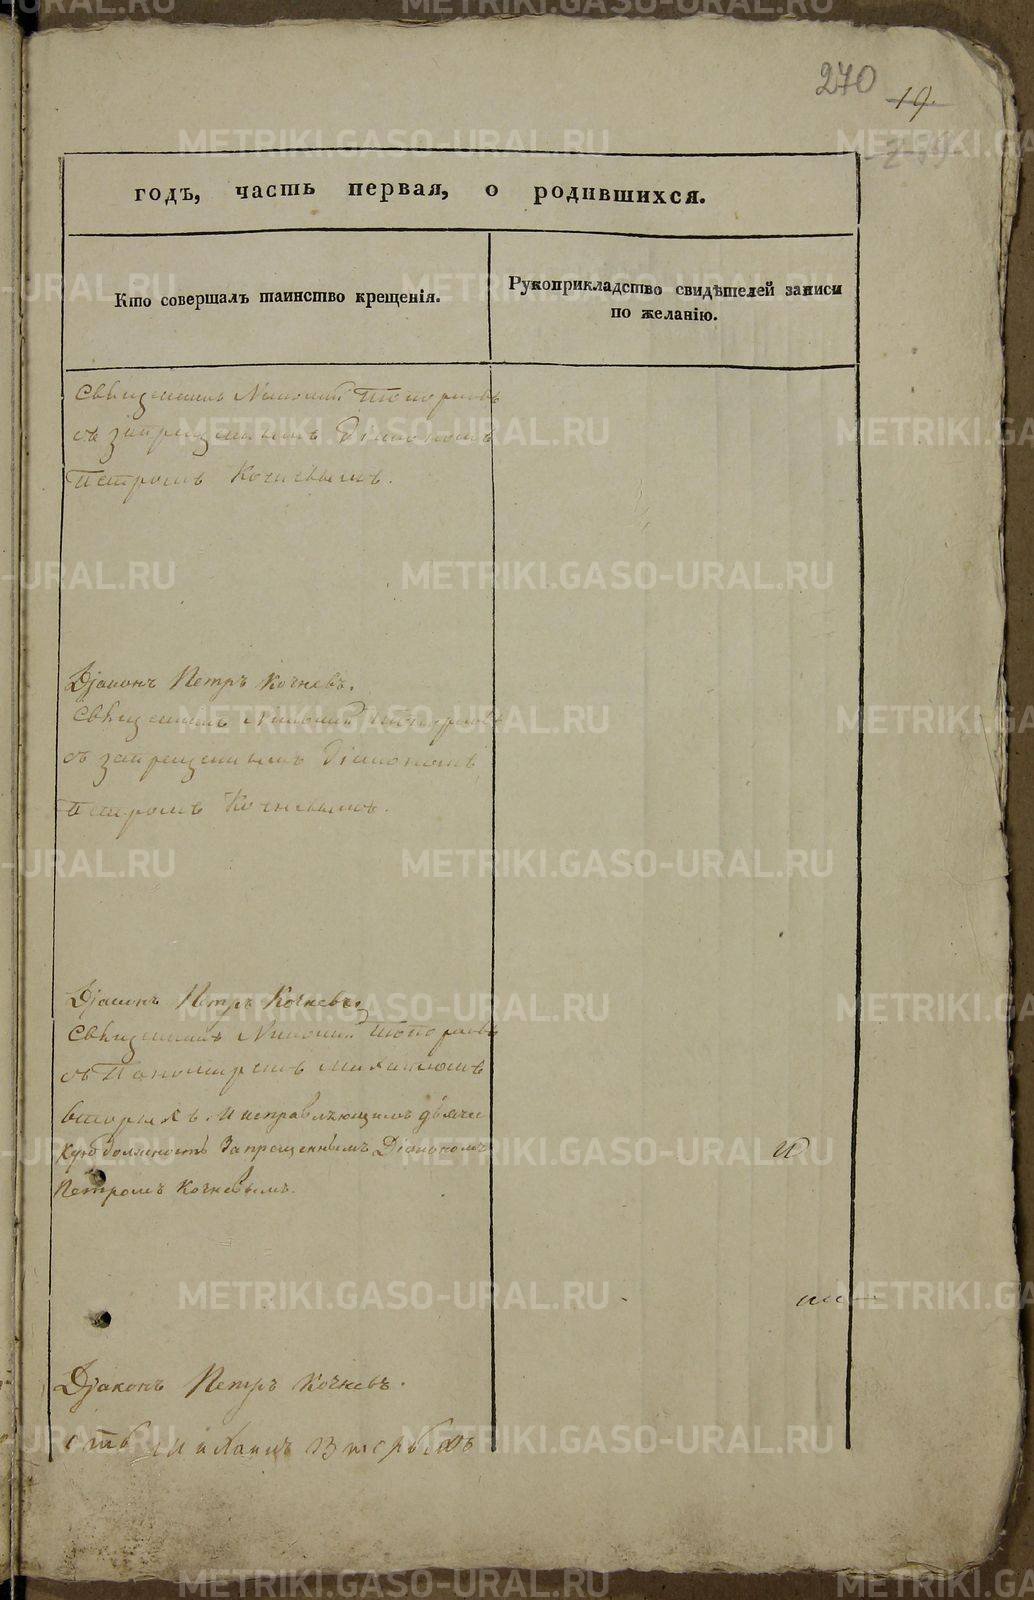 270
19
годъ, часть первая, о родившихся.
Кто совершалъ таинство крещенія.
Рукоприкладство свидѣтелей записи
по желанію.
Священникъ Николай Топорковъ
съ запрещеннымъ Діакономъ
Петромъ Кочневымъ.
Діаконъ Петръ Кочневъ.
Священникъ Николай
съ запрещеннымъ Діакономъ
Петромъ Кочневымъ.
Діаконъ Петръ Кочневъ
Священникъ Николай Топорковъ
съ Пономаремъ
Вторыхъ. И исправляющимъ дьяче
кую должность Запрещеннымъ Діакономъ
Петромъ Кочневымъ.
Діаконъ Петръ Кочневъ.
METRIKI.GASO-URAL.RU